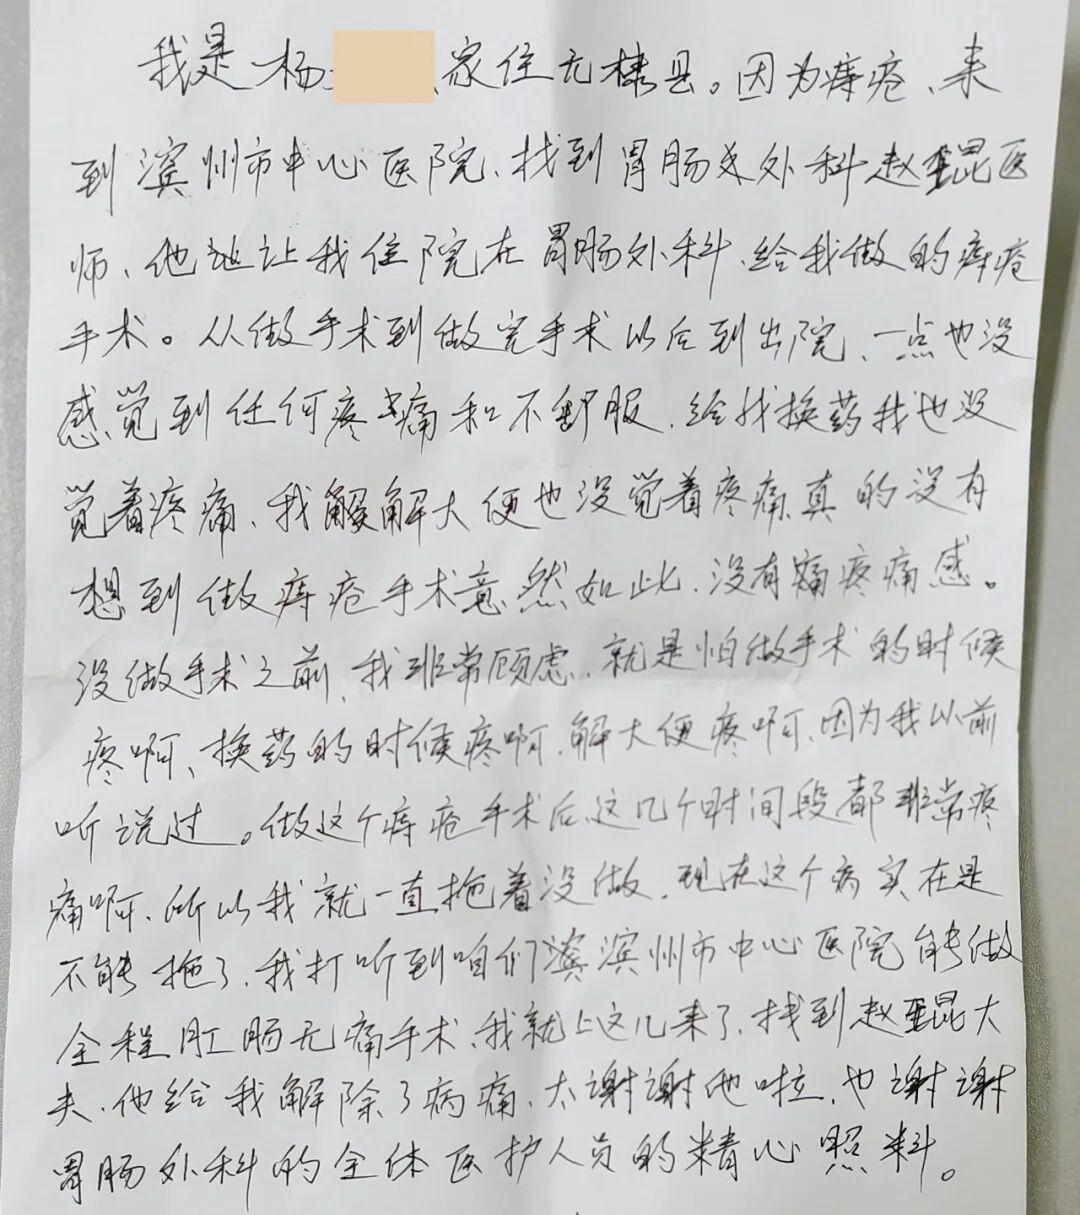 我是杨 家住无棣县。因为痔疮、来
到滨州市中心医院、找到胃肠外科赵琨医
师、他让我住院在胃肠外科、给我做的痔疮
手术。从做手术到做完手术以后到出院、一点也没
感觉到任何疼痛和不舒服、给我换药我也没
觉着疼痛、我解大便也没觉着疼痛、真的没有
想到做痔疮手术竟然如此、没有疼痛感。
没做手术之前、我非常顾虑、就是怕做手术的时候
疼啊、换药的时候疼啊、解大便疼啊、因为我以前
听说过。做这个痔疮手术后、这几个时间段都非常疼
痛啊、所以我就一直拖着没做、现在这个病实在是
不能拖了、我打听到咱们滨州市中心医院能做
全程肛肠无痛手术、我就上这儿来了、找到赵琨大
夫、他给我解除了病痛、太谢谢他啦、也谢谢
胃肠外科的全体医护人员的精心照料。